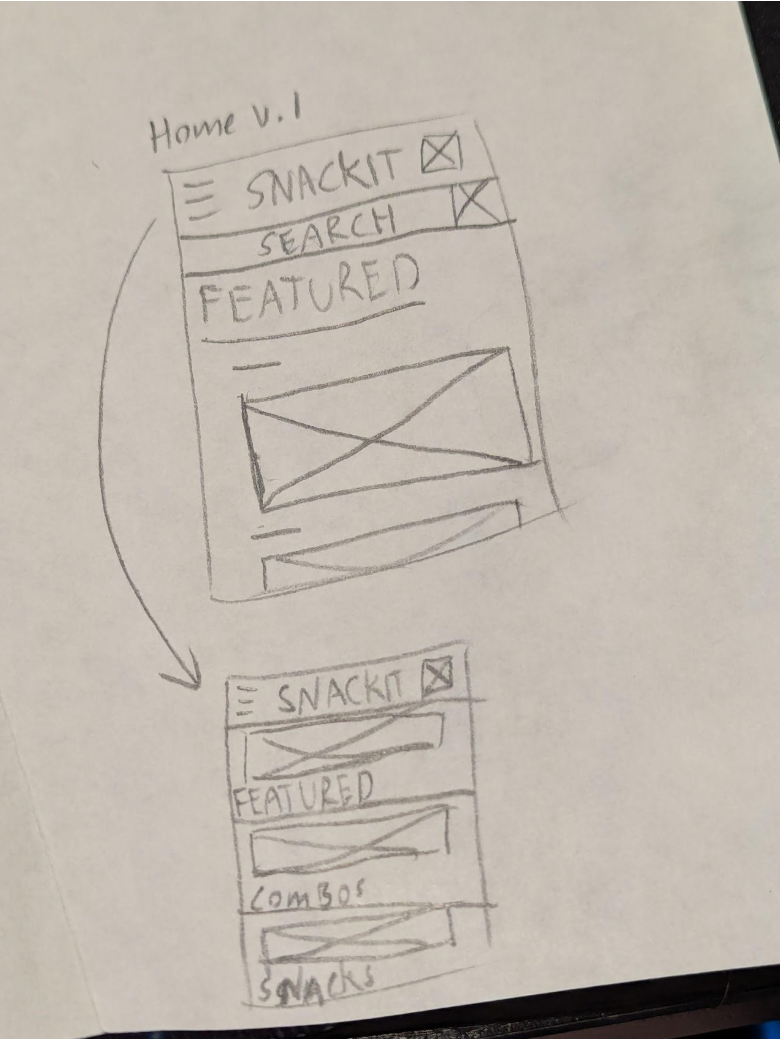 Home v.1
SNACKIT
SEARCH
FEATURED
SNACKIT
FEATURED
ComBos
SNACKS